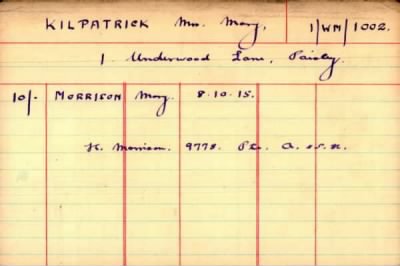 KILPATRICK Mrs. Mary, 1/WM/1002.
1 Underwood Lane, Paisley.
10/- MORRISON Mary. 8.10.15.
K. Morrison. 9778. Pte. A. & S. H.